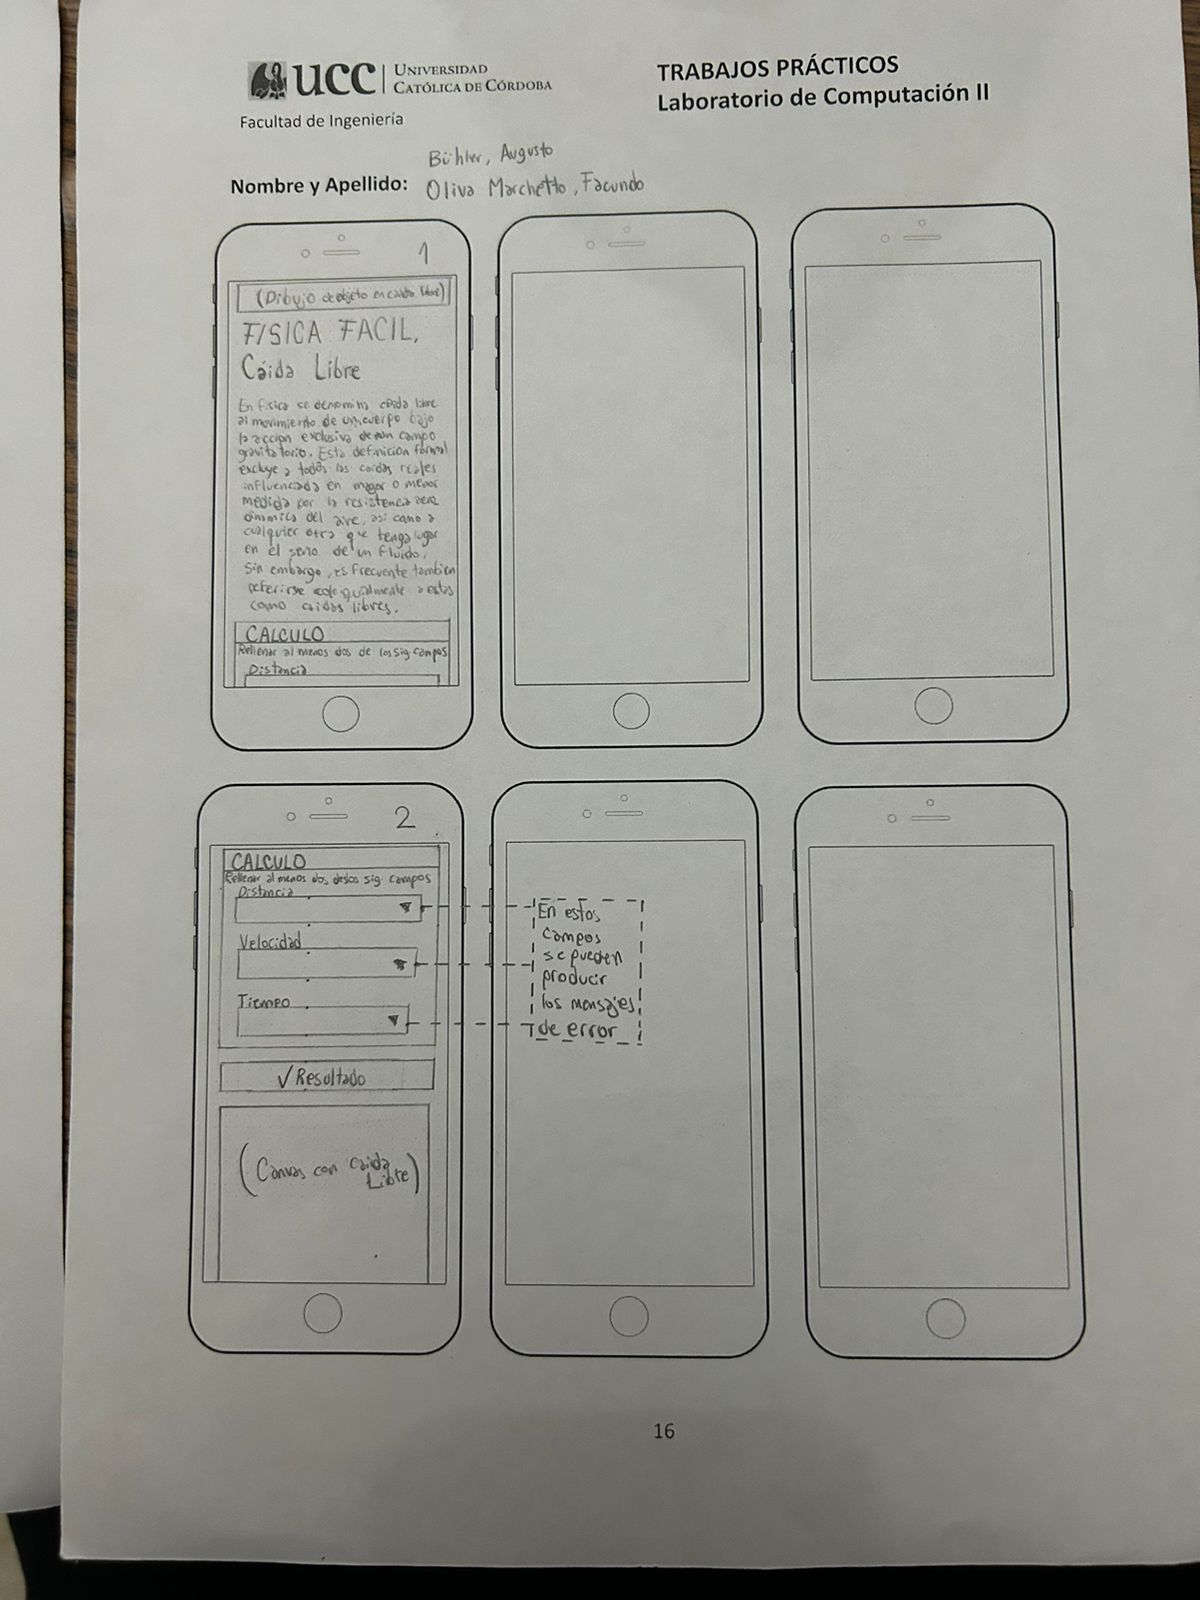 UCC UNIVERSIDAD
CATÓLICA DE CÓRDOBA
Facultad de Ingeniería
TRABAJOS PRÁCTICOS
Laboratorio de Computación II
Nombre y Apellido:
Bühler, Augusto
Oliva Marchetto, Facundo
1
(Dibujo de objeto en caida libre)
FISICA FACIL,
Cáida Libre
En fisica se denomina caida libre
al movimiento de un cuerpo bajo
la accion exclusiva de un campo
gravitatorio. Esta definicion formal
excluye a todas las caidas reales
influenciada en mayor o menor
medida por la resistencia aero
dinamica del aire, asi como a
cualquier otra que tenga lugar
en el seno de un fluido,
Sin embargo, es frecuente tambien
referirse coloquialmente a estas
como caidas libres.
CALCULO
Rellenar al menos dos de los sig campos
Distancia
2
CALCULO
Rellenar al menos dos de los sig. campos
Distancia
Velocidad
Tiempo
✓ Resultado
(Canvas con caida
Libre)
En estos
campos
se pueden
producir
los mensajes
de error
16